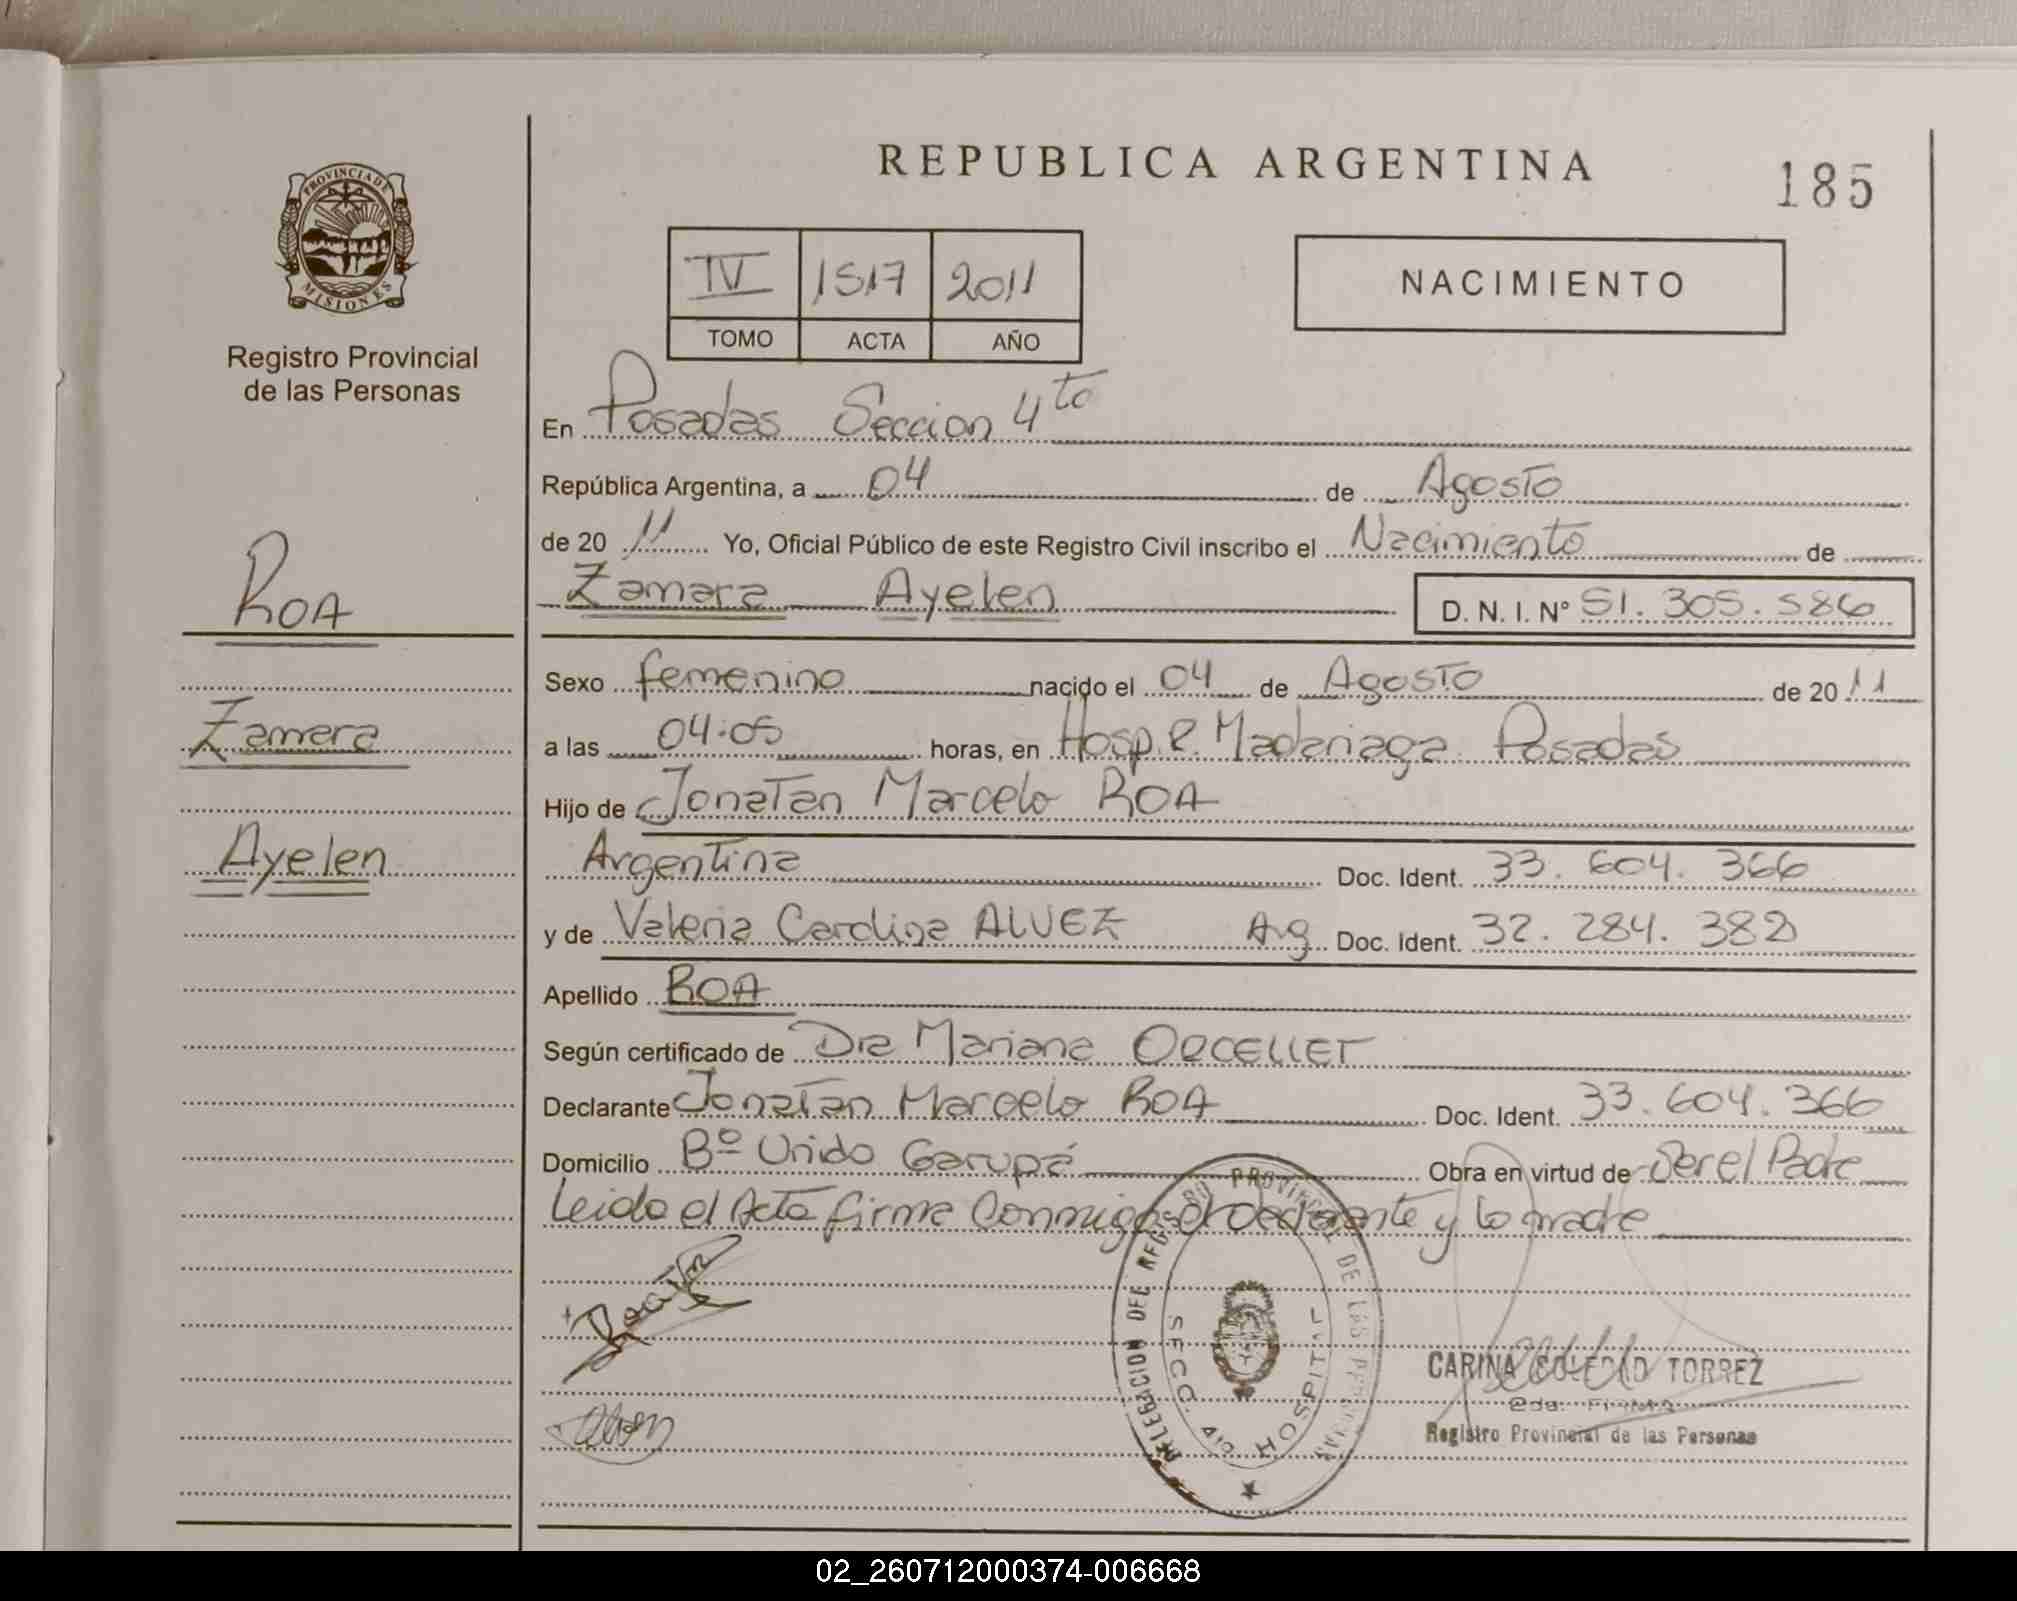 REPUBLICA ARGENTINA
185
PROVINCIA DE MISIONES
Registro Provincial
de las Personas
IV 1517 2011
TOMO ACTA AÑO
NACIMIENTO
En Posadas Seccion 4to
República Argentina, a 04 de Agosto
de 20 11 Yo, Oficial Público de este Registro Civil inscribo el Nacimiento de
Zamara Ayelen D. N. I. Nº 51.305.586
ROA
Zamara
Ayelen
Sexo femenino nacido el 04 de Agosto de 20 11
a las 04:05 horas, en Hosp. R. Madariaga Posadas
Hijo de Jonatan Marcelo ROA
Argentina Doc. Ident. 33.604.366
y de Valeria Carolina ALVEZ Arg Doc. Ident. 32.284.382
Apellido ROA
Según certificado de Dra Mariana ORCELLET
Declarante Jonatan Marcelo ROA Doc. Ident. 33.604.366
Domicilio Bº Unido Garupá Obra en virtud de Ser el Padre
Leida el Acta firma Conmigo el declarante y la madre
DELEGACION DEL REGISTRO PROVINCIAL DE LAS PERSONAS
SECC. 4ta HOSPITAL
CARINA SOLEDAD TORREZ
2da. FIRMA
Registro Provincial de las Personas
02_260712000374-006668